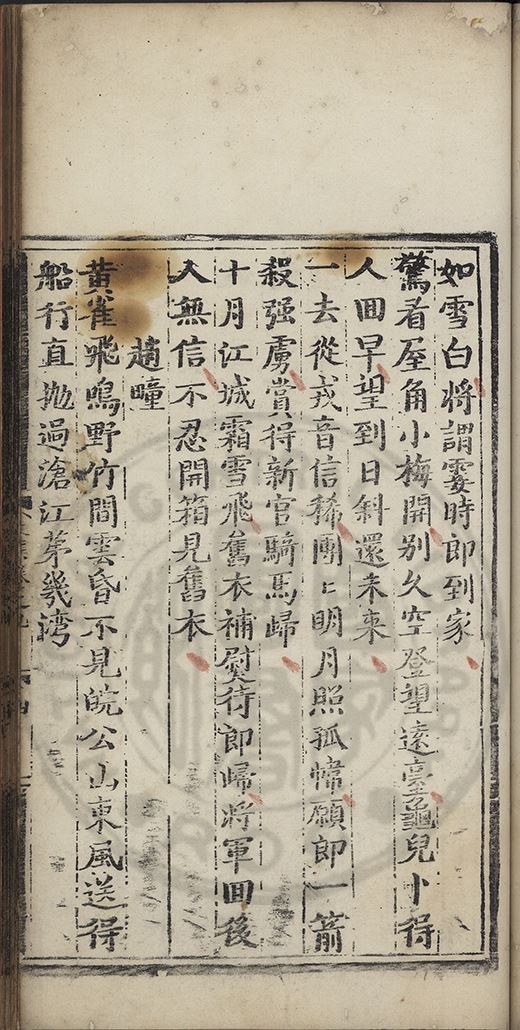 如雪白將謂霎時即到家
驚看屋角小梅開別久空登望遠臺龜兒卜得
人囬早望到日斜還未來
一去從戎音信稀團〻明月照孤幃願郎一箭
殺强虜賞得新官騎馬歸
十月江城霜雪飛舊衣補熨待郎歸將軍囬後
人無信不忍開箱見舊衣
趙疃
黄雀飛鳴野竹間雲昏不見皖公山東風送得
船行直抛過滄江苐幾灣